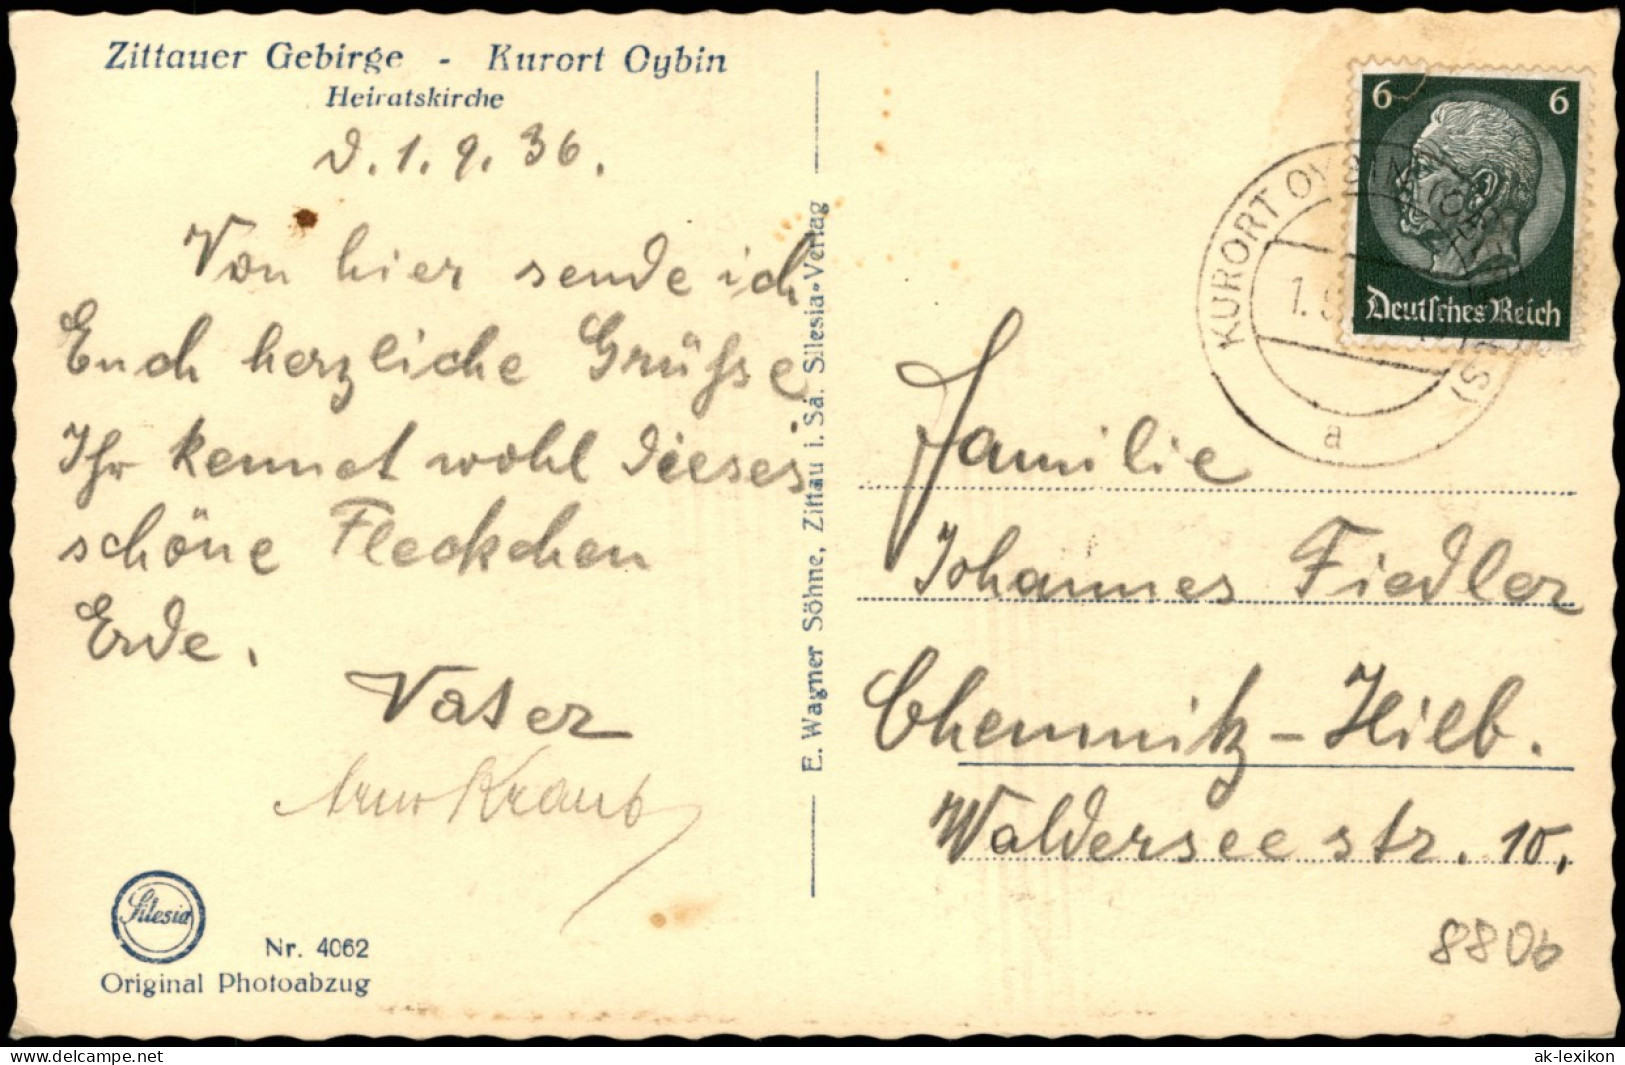 Zittauer Gebirge - Kurort Oybin
Heiratskirche
d. 1. 9. 36.
Von hier sende ich
Euch herzliche Grüße
Ihr kennet wohl dieses
schöne Fleckchen
Erde.
Vater
Silesia
Nr. 4062
Original Photoabzug
E. Wagner Söhne, Zittau i. Sa. Silesia-Verlag
6 6
Deutsches Reich
KURORT OYBIN
a
Familie
Johannes Fiedler
Chemnitz-Hilb.
Walderseestr. 10.
8806
www.delcampe.net
ak-lexikon